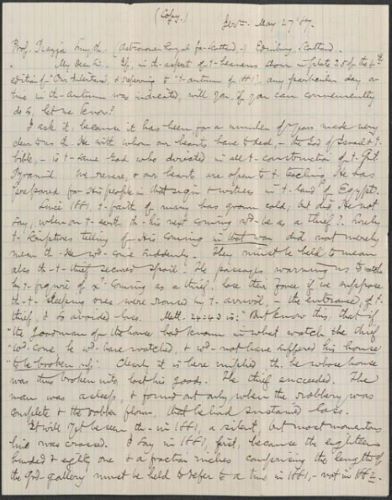 (Copy.)
May 27 '87.
Prof. Piazzi Smyth Astronomer Royal for Scotland, Edinburg, Scotland.
My dear Sir If, in the aspect of t- heavens shown in plate 25 of the 4th
edition of "Our Inheritance, & referring to "t- autumn of 1881, any particular day or
time in the autumn was indicated, will you, if you can conveniently
do so, let me know?
I ask it, because it has been for a number of years made very
clear to us th- He with whom our hearts have to deal, - the God of Israel & t-
Bible, - is t- same God who directed in all t- construction of t- Gt
Pyramid. We revere, & our hearts are open to t- teaching He has
prepared for His people in that sign & witness in t- land of Egypt.
Since 1881, t- faith of many has grown cold, but did He not
say, when on t- earth th- his next coming wd- be as a thief? Surely
t- Scriptures telling of his coming in that way did not merely
mean th- He wd- come suddenly. They must be held to mean
also th- t- thief secures spoil. The passages warning us to watch
by t- figure of X's coming as a thief, lose their force if we suppose
th- t- sleeping ones were roused by t- arrival, - the entrance, of t-
thief, & so avoided loss. Matt. "But know this, that if
"the goodman of the house had known in what watch the thief
"wd- come, he wd- have watched, & wd- not have suffered his house
"to be broken up." Clearly it is here implied th- he whose house
was thus broken into lost his goods. The thief succeeded. The
man was asleep, & found out only when the robbery was
complete & the robber flown, that he had sustained loss.
It will not be seen th- in 1881, a silent, but most momentous
line was crossed. I say in 1881, first, because the eighteen
hundred & eighty one & a fraction inches comprising the length of
the Gd- gallery must be held to refer to a time in 1881, - not in 1882.